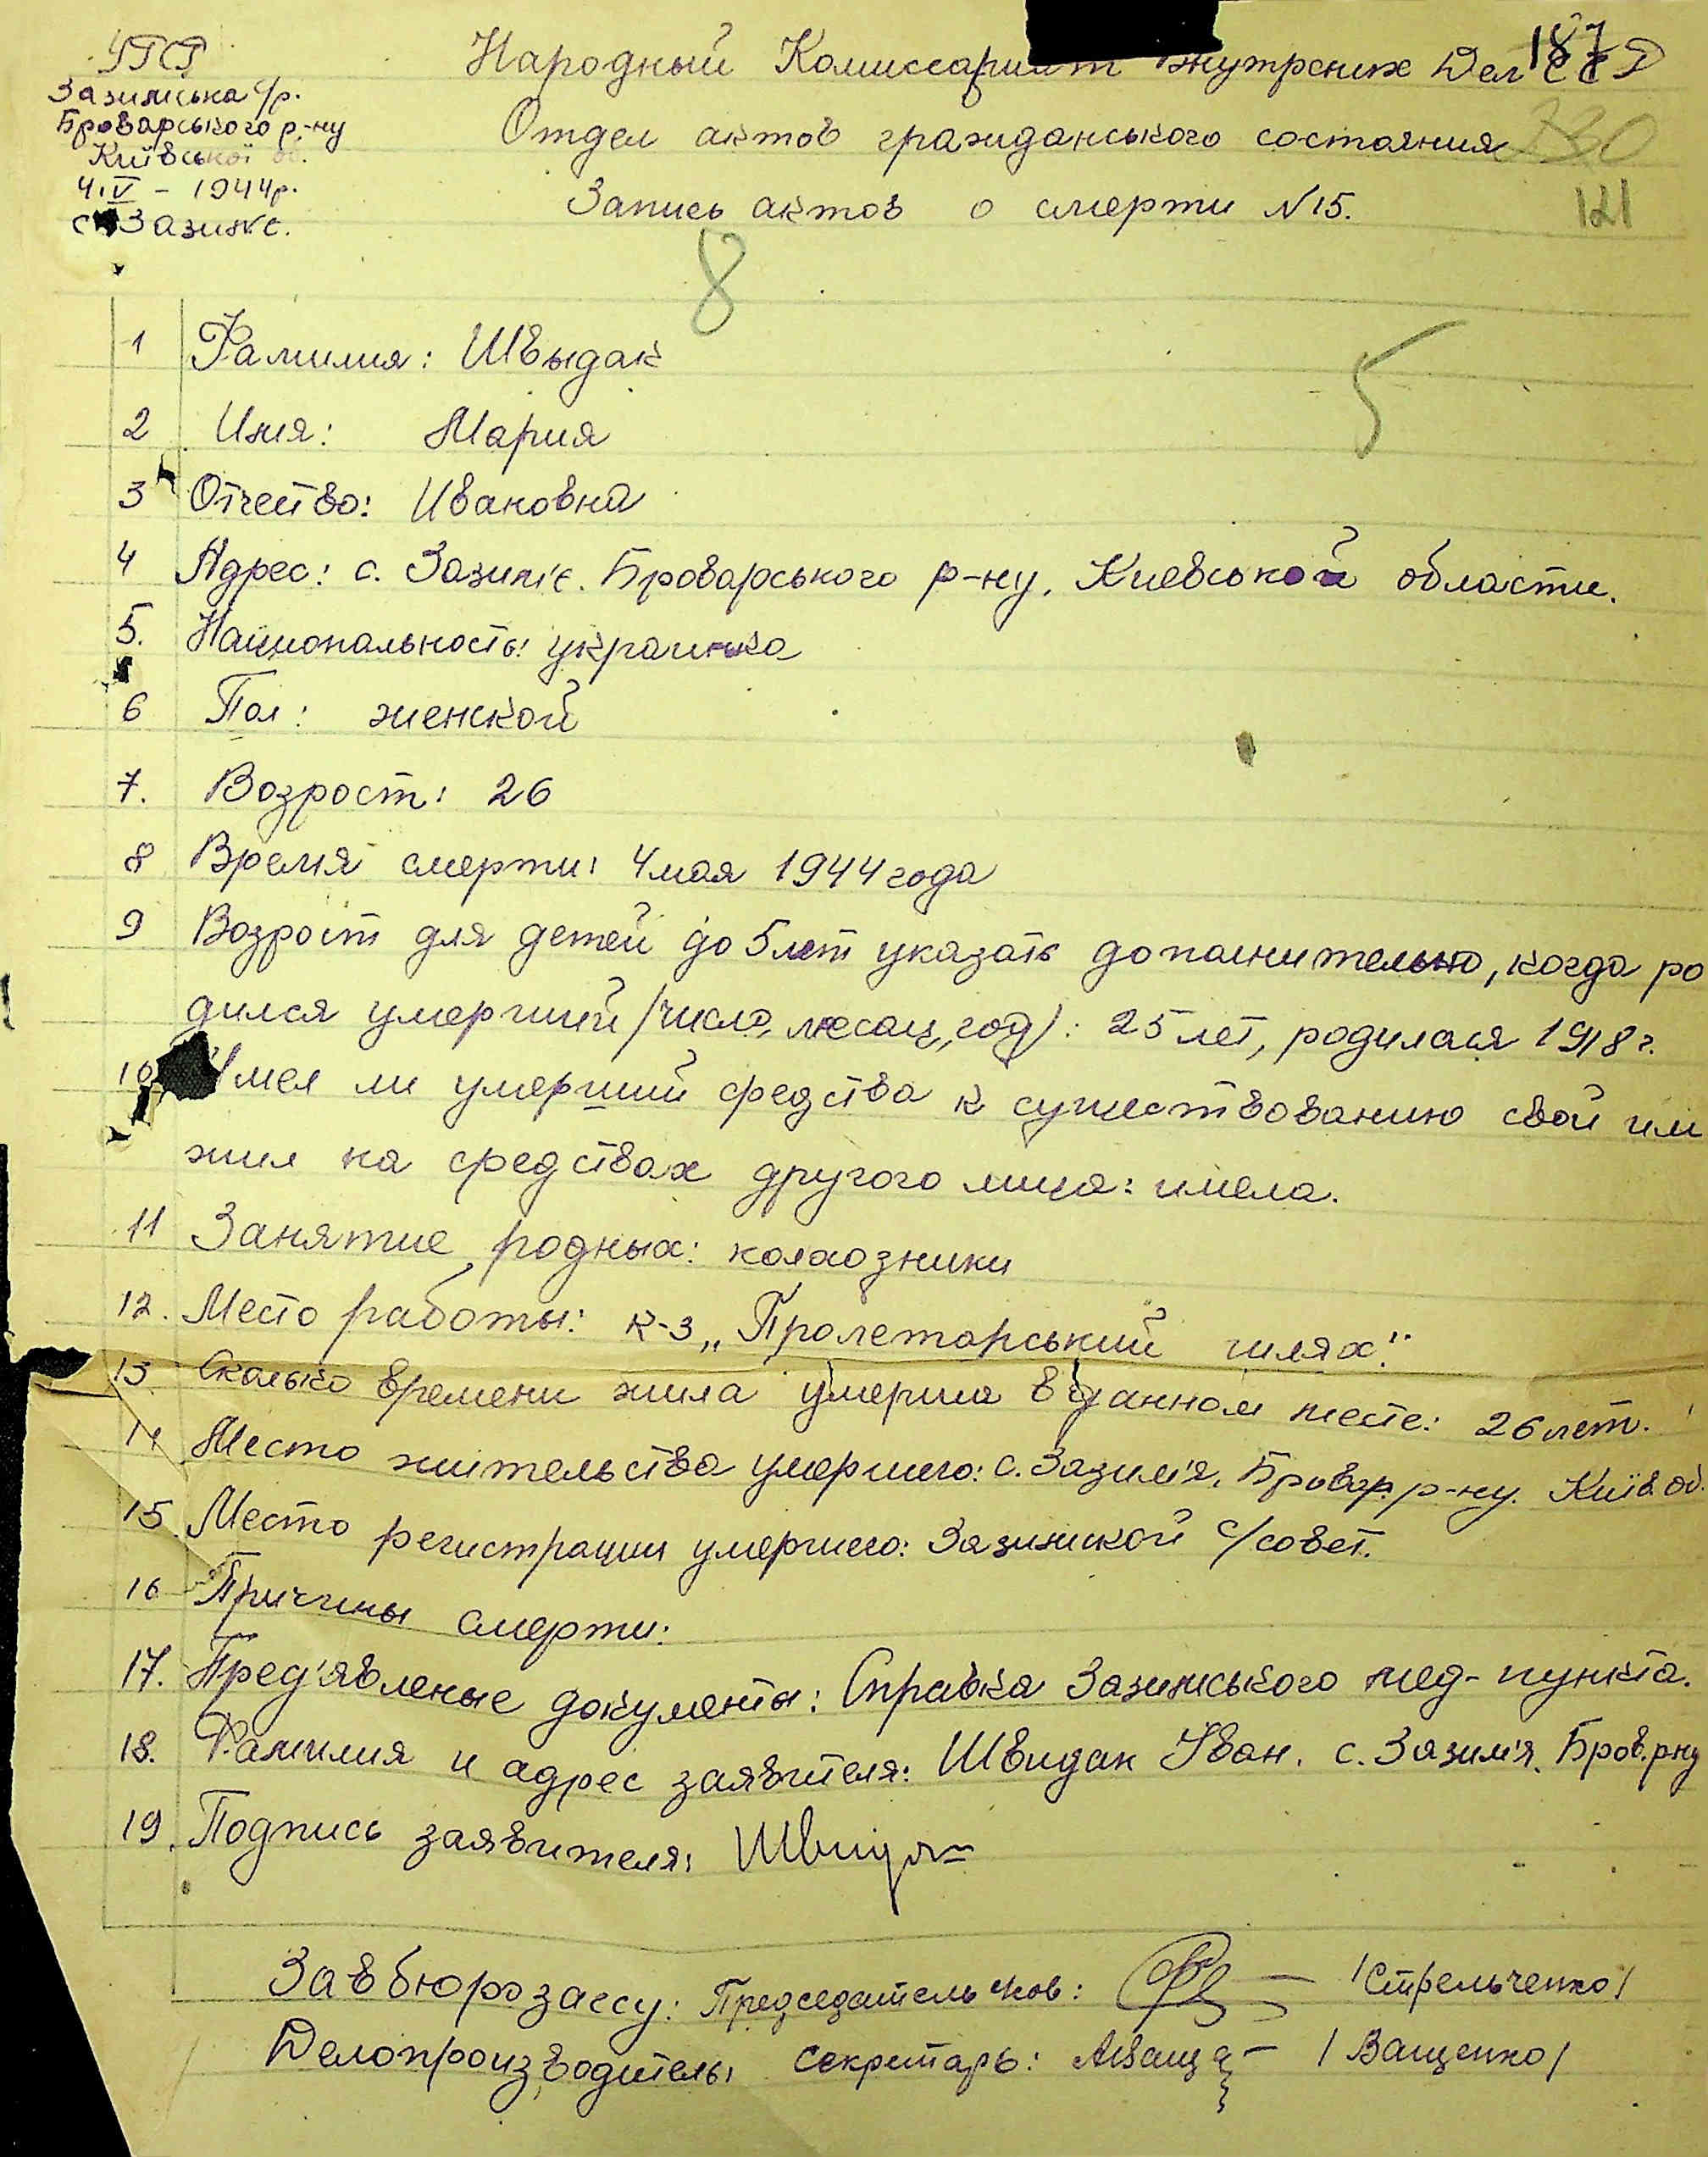 УРСР
Зазимська с/р.
Броварського р-ну
Київської об.
4.V - 1944р.
с. Зазимє.
Народный Комиссариат Внутрених Дел СС
187
Отдел актов гражданського состояния
330
Запись актов о смерти N15.
121
8
5
1 Фамилия: Швыдак
2 Имя: Мария
3 Отчество: Ивановна
4 Адрес: с. Зазиміє. Броварського р-ну. Киевськой области.
5. Национальность: украинка
6 Пол: женской
7. Возрост: 26
8 Время смерти: 4 мая 1944 года
9 Возрост для детей до 5 лет указать дополнительно, когда ро
дился умерший /число, месац, год/: 25 лет, родилася 1918 г.
10 Имел ли умерший средства к существованию свои или
жил на средствах другого лица: имела.
11 Занятие родных: колхозники
12. Место работы: к-з „Пролетарський шлях".
13. Сколько времени жила умерша в данном месте: 26 лет.
14 Место жительства умершего: с. Зазим'я, Бровар. р-ну. Київ. об.
15. Место регистрации умершего: Зазимской с/совет.
16 Причины смерти:
17. Пред'явленые документы: Справка Зазимського мед-пункта.
18. Фамилия и адрес заявителя: Швидак Іван. с. Зазим'я. Бров. рну
19. Подпись заявителя: Швидак
Завбюрозагсу: Председатель /Стрельченко/
Делопроизводитель: Секретарь: АВаще /Ващенко/